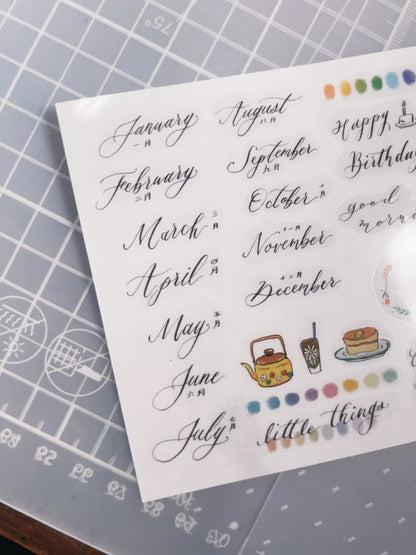 January
一月
February
二月
March
三月
April
四月
May
五月
June
六月
July
七月
August
八月
September
九月
October
十月
November
十一月
December
十二月
Happy
Birthday
good
little things
75°